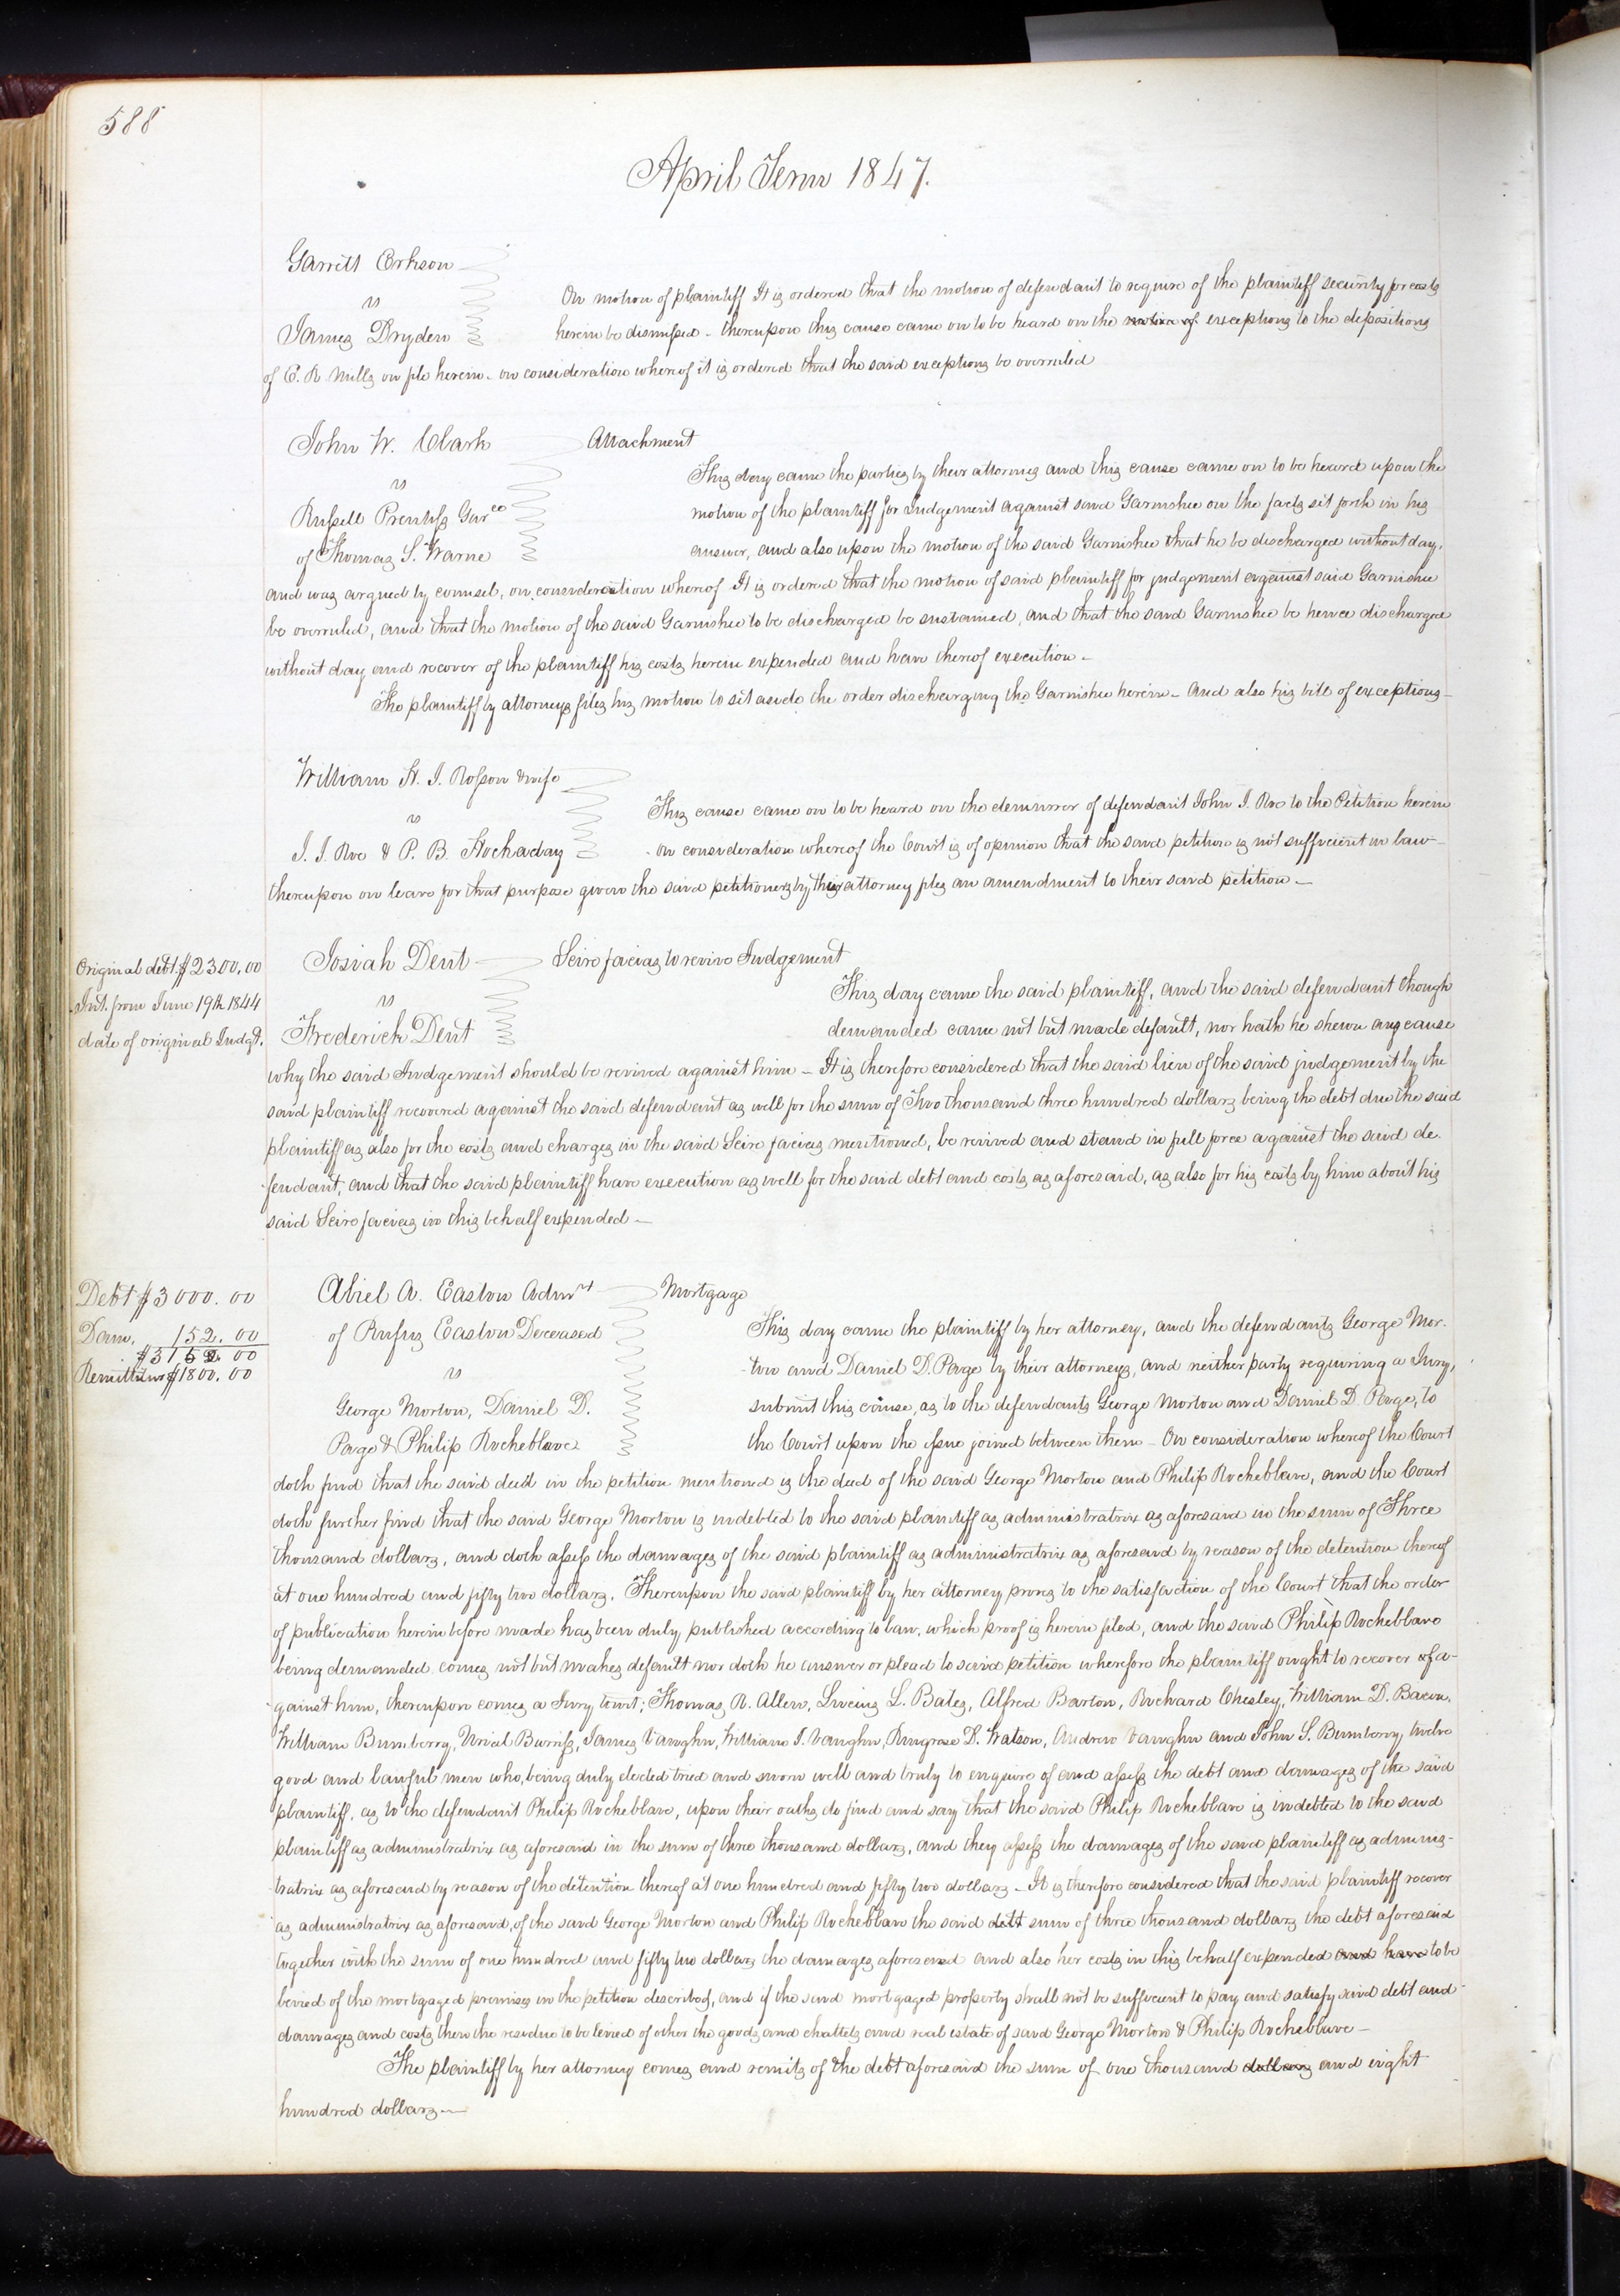 588
April Term 1847.
Garritt Erkson
vs
James Dryden
On motion of plaintiff It is ordered that the motion of defendant to require of the plaintiff security for costs
herein be dismissed - thereupon this cause came on to be heard on the motion of exceptions to the depositions
of E. R. Mills on file herein - on consideration whereof it is ordered that the said exceptions be overruled
John W. Clark
vs
Russell Prentiss Garee
of Thomas S. Warne
Attachment
This day came the parties by their attorneys and this cause came on to be heard upon the
motion of the plaintiff for Judgement against said Garnishee on the facts set forth in his
answer, and also upon the motion of the said Garnishee that he be discharged without day,
and was argued by counsel, on consideration whereof It is ordered that the motion of said plaintiff for judgement against said Garnishee
be overruled, and that the motion of the said Garnishee to be discharged be sustained, and that the said Garnishee be hence discharged
without day and recover of the plaintiff his costs herein expended and have thereof execution -
The plaintiff by attorneys files his motion to set aside the order discharging the Garnishee herein - And also his bill of exceptions -
William H. J. Rosson & wife
vs
J. J. Roe & P. B. Hockaday
This cause came on to be heard on the demurrer of defendant John J. Roe to the Petition herein
- on consideration whereof the Court is of opinion that the said petition is not suffvcient in law -
thereupon on leave for that purpose given the said petitioners by their attorney files an amendment to their said petition -
Original debt $2300.00
Int. from June 19th 1844
date of original Judgt.
Josiah Dent
vs
Frederick Dent
Scire facias to revive Judgement
This day came the said plaintiff, and the said defendant though
demanded came not but made default, nor hath he shewn any cause
why the said Judgement should be revived against him - It is therefore considered that the said lien of the said judgement by the
said plaintiff recovered against the said defendant as well for the sum of Two thousand three hundred dollars being the debt due the said
plaintiff as also for the costs and charges in the said Scire facias mentioned, be revived and stand in full force against the said de-
fendant, and that the said plaintiff have execution as well for the said debt and costs as aforesaid, as also for his costs by him about his
said Scire facias in this behalf expended -
Debt $3000.00
Dam. 152.00
$3152.00
Remittitur $1800.00
Abiel A. Easton Admrt
of Rufus Easton Deceased
vs
George Morton, Daniel D.
Page & Philip Rocheblave
Mortgage
This day came the plaintiff by her attorney, and the defendants George Mor-
-ton and Daniel D. Page by their attorneys, and neither party requiring a Jury,
submit this cause, as to the defendants George Morton and Daniel D. Page, to
the Court upon the issue joined between them - On consideration whereof the Court
doth find that the said deed in the petition mentioned is the deed of the said George Morton and Philip Rocheblave, and the Court
doth further find that the said George Morton is indebted to the said plaintiff as administratrix as aforesaid in the sum of Three
thousand dollars, and doth assess the damages of the said plaintiff as administratrix as aforesaid by reason of the detention thereof
at one hundred and fifty two dollars. Thereupon the said plaintiff by her attorney proves to the satisfaction of the Court that the order
of publication herein before made has been duly published according to law, which proof is herein filed, and the said Philip Rocheblave
being demanded comes not but makes default nor doth he answer or plead to said petition wherefore the plaintiff ought to recover of a-
-gainst him, thereupon comes a Jury towit; Thomas R. Allen, Lucius L. Bates, Alfred Barton, Richard Chesley, William D. Bacon,
William Bumberry, Urial Burriss, James Vaughn, William J. Vaughn, Ringrose D. Watson, Andrew Vaughn and John S. Bumberry, twelve
good and lawful men who, being duly elected tried and sworn well and truly to enquire of and assess the debt and damages of the said
plaintiff, as to the defendant Philip Rocheblave, upon their oaths do find and say that the said Philip Rocheblave is indebted to the said
plaintiff as administratrix as aforesaid in the sum of three thousand dollars, and they assess the damages of the said plaintiff as adminis-
-tratrix as aforesaid by reason of the detention thereof at one hundred and fifty two dollars - It is therefore considered that the said plaintiff recover
as administratrix as aforesaid, of the said George Morton and Philip Rocheblave the said debt sum of three thousand dollars the debt aforesaid
together with the sum of one hundred and fifty two dollars the damages aforesaid and also her costs in this behalf expended and have to be
levied of the mortgaged premises in the petition described, and if the said mortgaged property shall not be suffvcient to pay and satisfy said debt and
damages and costs then the residue to be levied of other the goods and chattels and real estate of said George Morton & Philip Rocheblave -
The plaintiff by her attorney comes and remits of the debt aforesaid the sum of one thousand dollars and eight
hundred dollars -